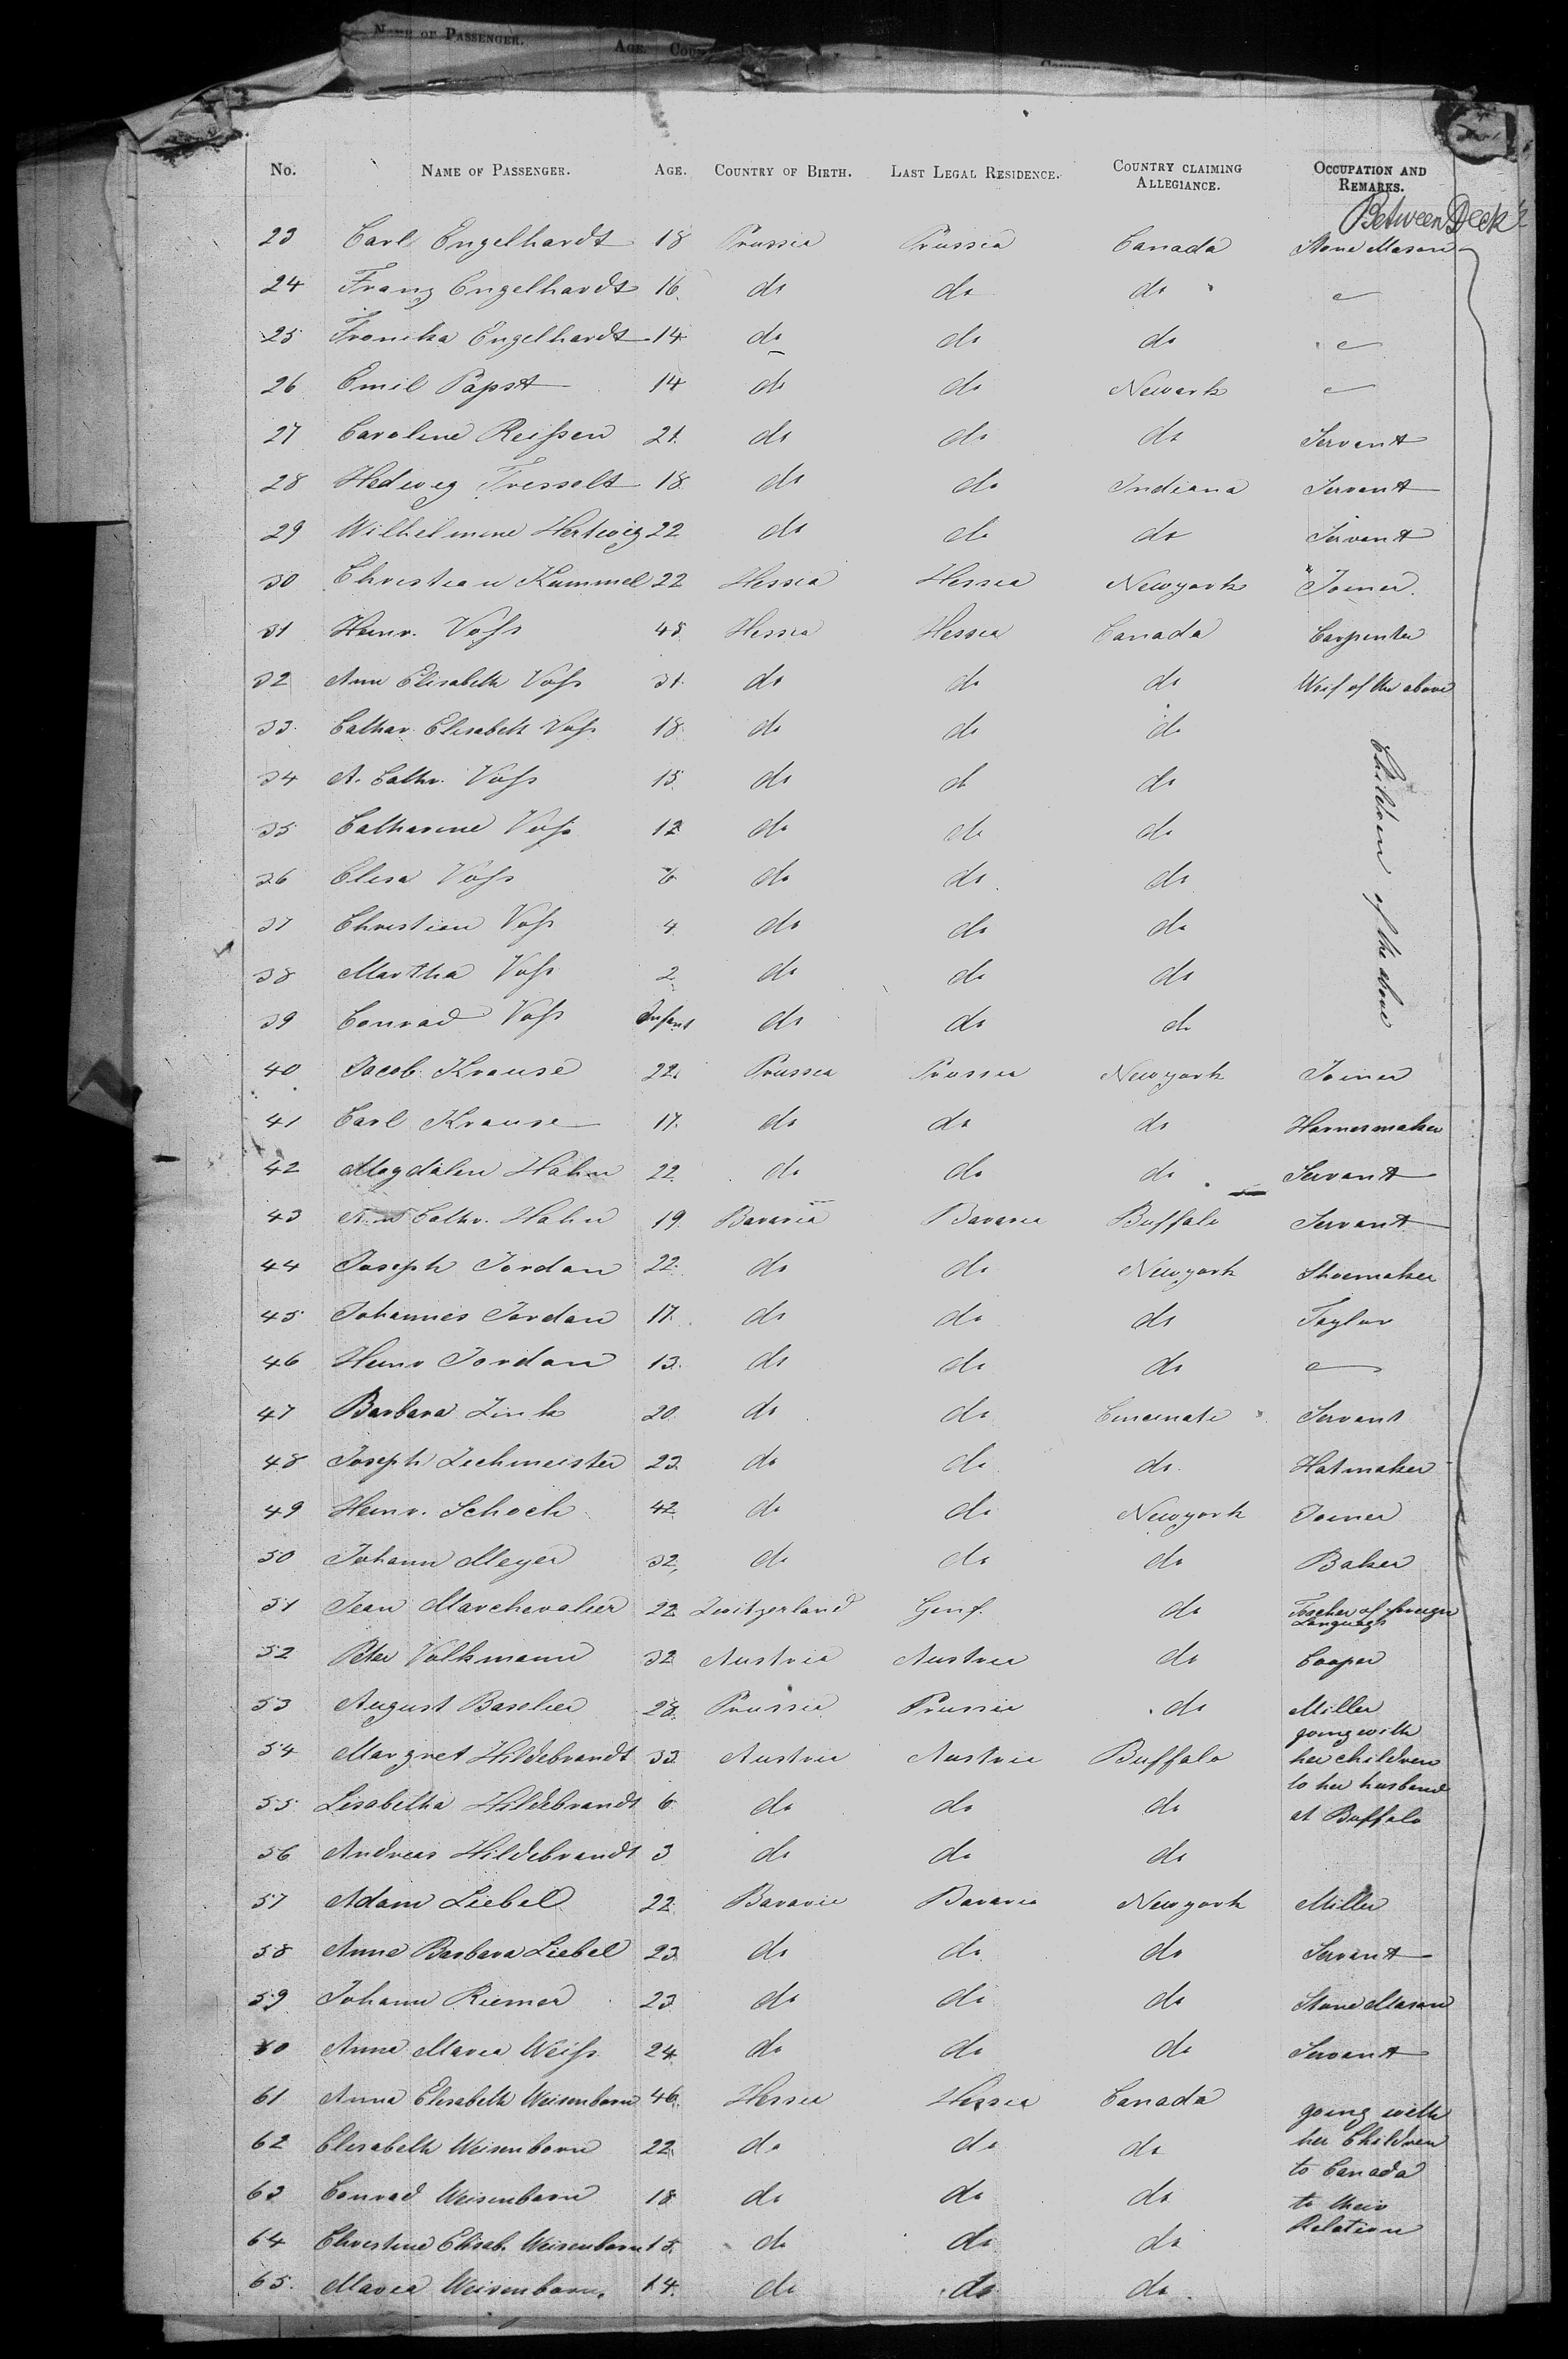 Name of Passenger. Age.
No. Name of Passenger. Age. Country of Birth. Last Legal Residence. Country claiming Allegiance. Occupation and Remarks.
Between Deck
23 Carl Engelhardt 18 Prussia Prussia Canada Stone Mason
24 Franz Engelhardt 16 do do do —
25 Fronika Engelhardt 14 do do do —
26 Emil Papst 14 do do Newark —
27 Caroline Reißen 21 do do do Servant
28 Hedwig Tresselt 18 do do Indiana Servant
29 Wilhelmine Hertwig 22 do do do Servant
30 Christian Kummel 22 Hessia Hessia Newyork Joiner
31 Heinr. Voß 48 Hessia Hessia Canada Carpenter
32 Ann Elisabeth Voß 31 do do do Weif of the above
33 Cathar Elisabeth Voß 18 do do do
34 A. Cathr. Voß 15 do do do
35 Catharine Voß 12 do do do
36 Elisa Voß 6 do do do
37 Christian Voß 4 do do do
38 Martha Voß 2 do do do
39 Conrad Voß Infant do do do
Children of the above
40 Jacob Krause 22 Prussia Prussia Newyork Joiner
41 Carl Krause 17 do do do Harnesmaker
42 Magdalen Hahn 22 do do do Servant
43 Cathr. Hahn 19 Bavaria Bavaria Buffalo Servant
44 Joseph Jordan 22 do do Newyork Shoemaker
45 Johannes Jordan 17 do do do Taylor
46 Heinr Jordan 13 do do do —
47 Barbara Zink 20 do do Cincinati Servant
48 Joseph Zechmeister 23 do do do Hatmaker
49 Heinr. Schoch 42 do do Newyork Joiner
50 Johann Meyer 32 do do do Baker
51 Jean Marchevalier 22 Zwitzerland Genf. do Teacher of foreign Languags
52 Peter Volkmann 32 Austria Austria do Cooper
53 August Baselier 28 Prussia Prussia do Miller
54 Margret Hildebrandt 33 Austria Austria Buffalo going with her children
55 Lisabetha Hildebrandt 6 do do do to her husband at Buffalo
56 Andreas Hildebrandt 3 do do do
57 Adam Liebel 22 Bavaria Bavaria Newyork Miller
58 Anna Barbara Liebel 23 do do do Servant
59 Johann Riemer 23 do do do Stone Mason
60 Anna Maria Weiß 24 do do do Servant
61 Anna Elisabeth Weisenborn 46 Hessia Hessia Canada going with
62 Elisabeth Weisenborn 22 do do do her Children to Canada
63 Conrad Weisenborn 18 do do do to their
64 Christine Elisab. Weisenborn 15 do do do Relation
65 Maria Weisenborn 14 do do do